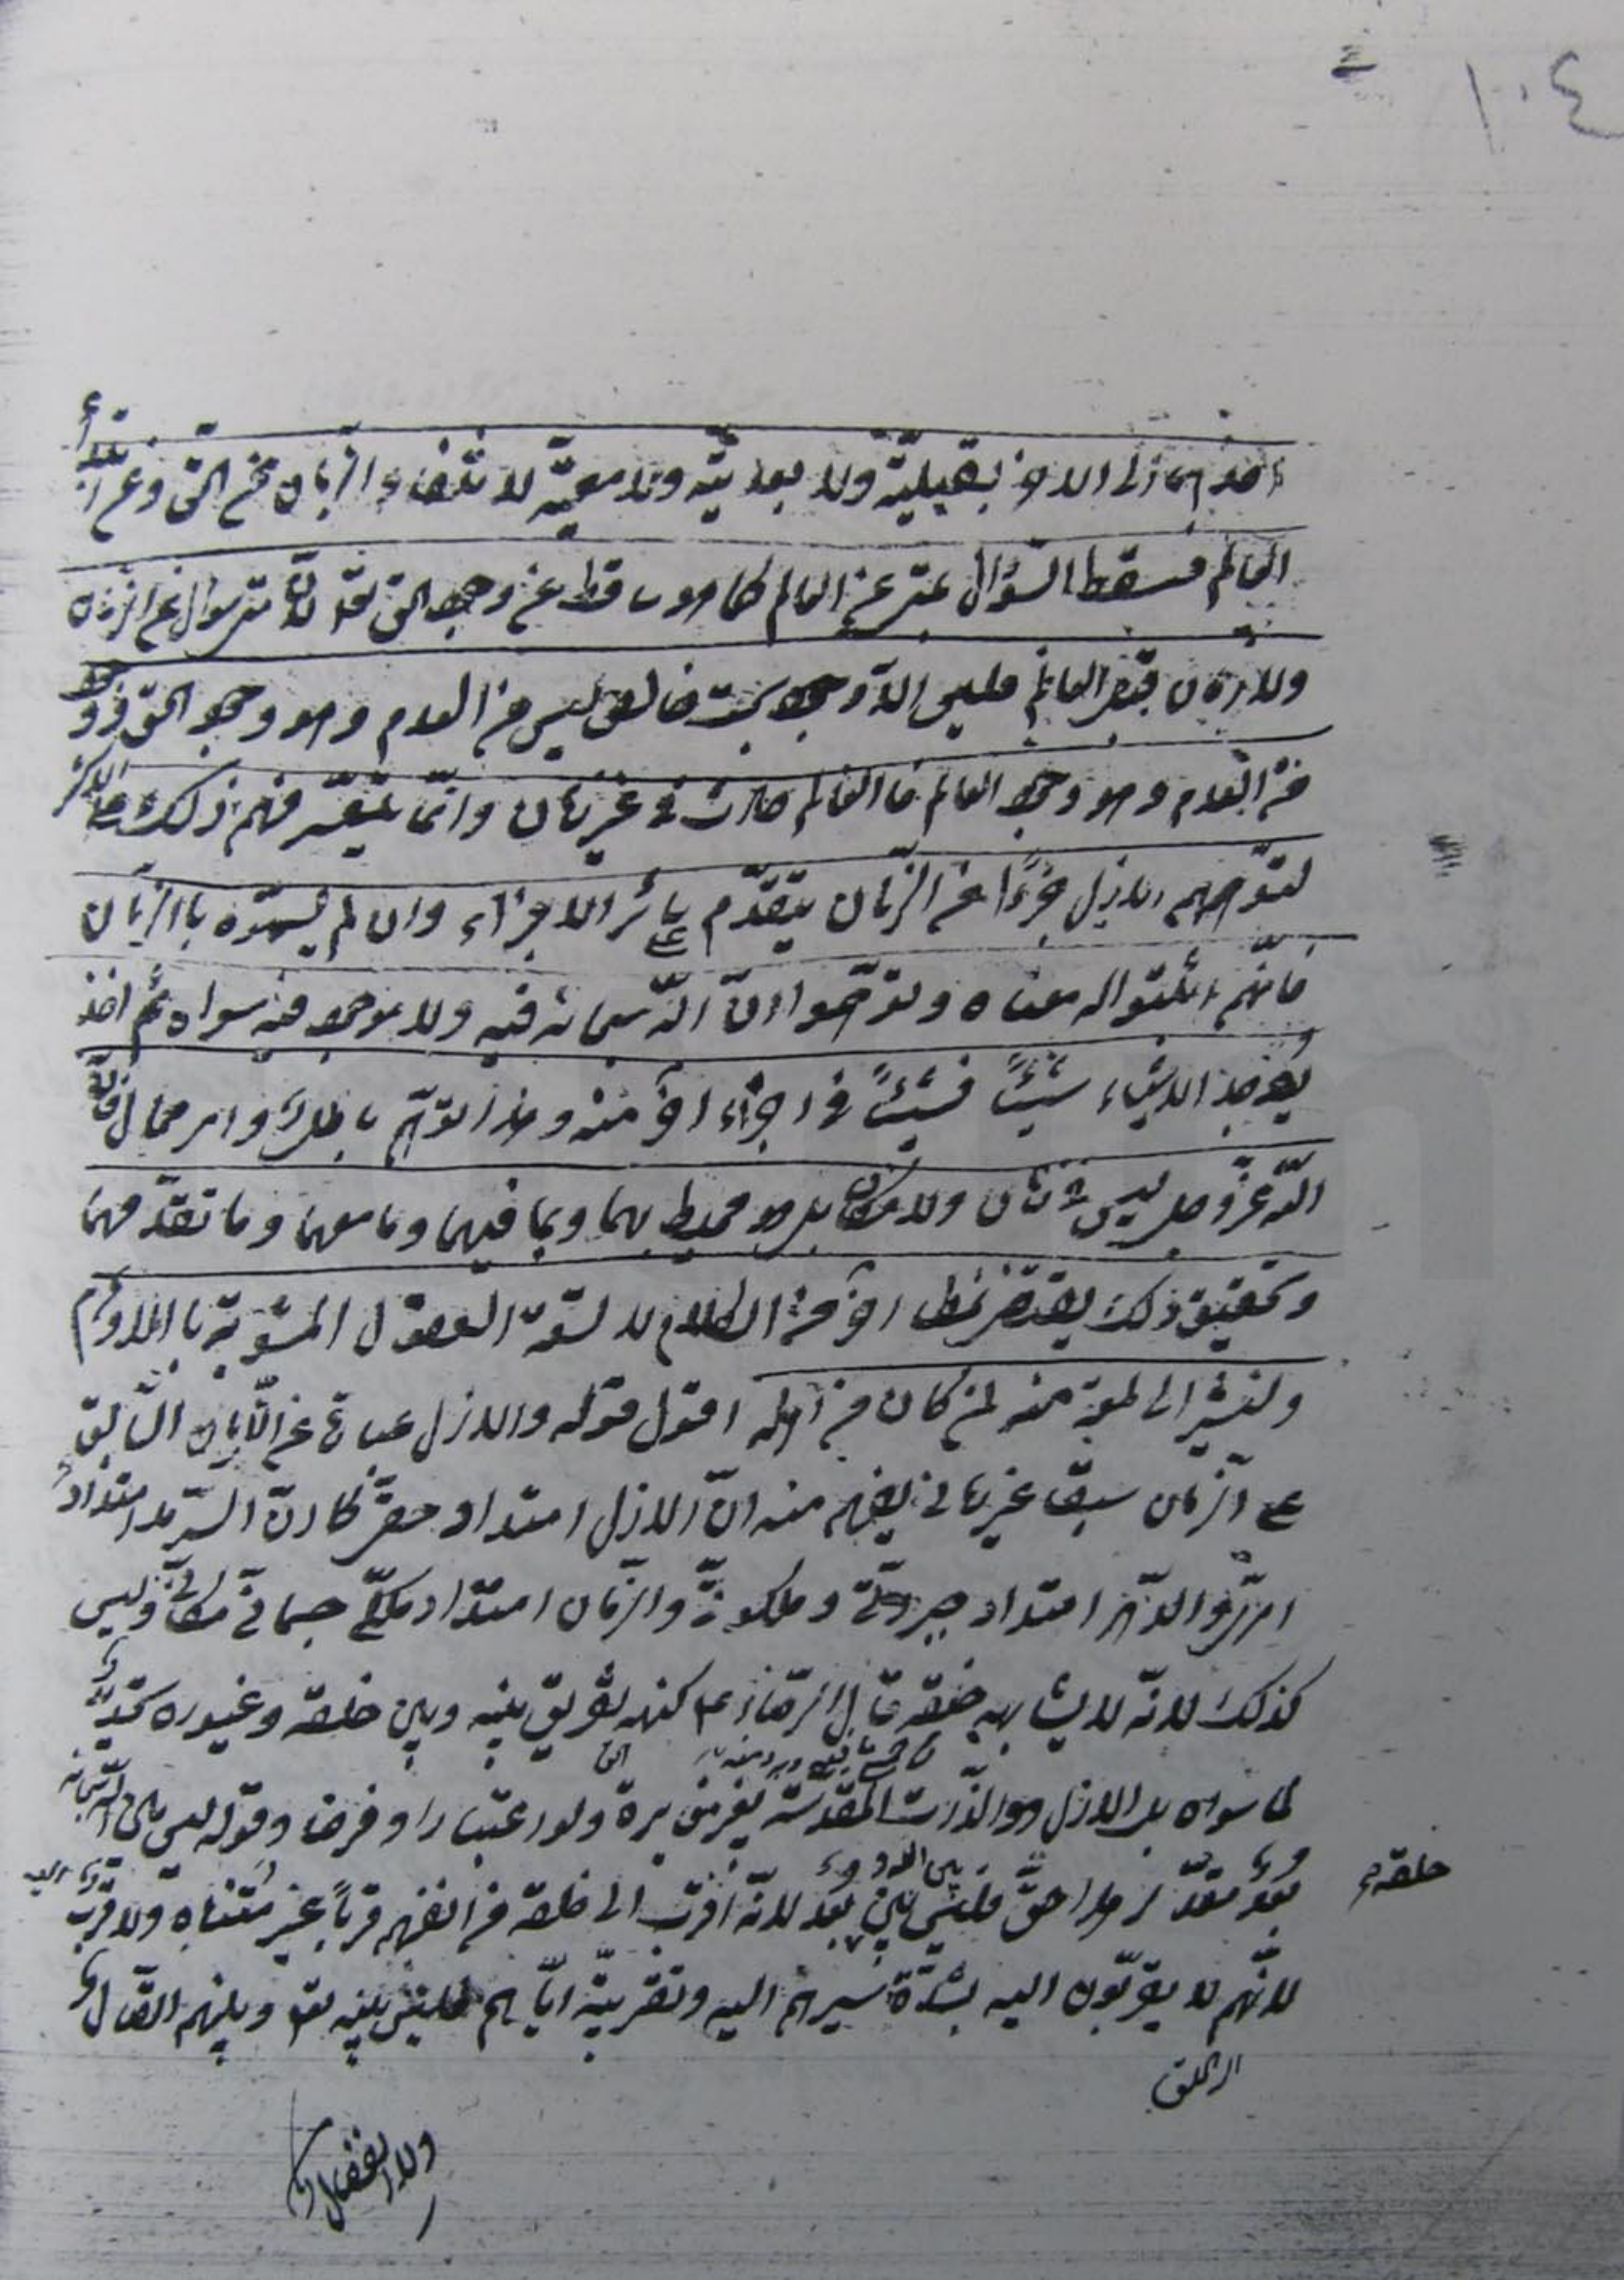 ١٠٤
احدهما الى الاخر بقبلية ولا بعدية ولا معية لانتفاء الزمان عن الحق وعن ابتداء
العالم فسقط السؤال بمتى عن العالم كما هو ساقط عن وجود الحق تعالى لان متى سؤال عن الزمان
ولا زمان قبل العالم فليس الا وجود بحت خالص ليس من العدم وهو وجود الحق ووجود
من العدم وهو وجود العالم فالعالم حادث في غير زمان وانما يتعسر فهم ذلك على الاكثر
لتوهمهم الازل جزءا من الزمان يتقدم سائر الاجزاء وان لم يسموه بالزمان
فانهم اثبتوا له معناه وتوهموا ان الله سبحانه فيه ولا موجود فيه سواه ثم اخذ
يوجد الاشياء شيئا فشيئا في اجزاء اخر منه وهذا توهم باطل وامر محال فان
الله عز وجل ليس في زمان ولا مكان بل هو محيط بهما وبما فيهما وما معهما وما تقدمهما
وتحقيق ذلك يقتضي نمطا اخر من الكلام لا تسعه العقول المشوبة بالاوهام
ولنشر الى لمعة منه لمن كان من اهله اقول قوله والازل عبارة عن اللازمان السابق
على الزمان سبقا غير زماني يفهم منه ان الازل امتداد حقي كما ان السرمد امتداد
امري والدهر امتداد جبروتي وملكوتي والزمان امتداد ملكي جسماني مكاني وليس
كذلك لانه لا يشابهه خلقه قال الرضا ع كنهه تفريق بينه وبين خلقه وغيوره تحديد
لما سواه بل الازل هو الذات المقدسة بغير مغايرة ولو اعتبارا وفرضا وقوله ليس بين الله سبحانه
خلقه
بعد مقدر هذا حق فليس بين بعد لانه اقرب الى خلقه من انفسهم قربا غير متناه ولا قرب اليه
لانهم لا يقربون اليه بشدة سيرهم اليه وتقريبه اياهم فليس بينه تعالى وبينهم اتصال
ولا انفصال